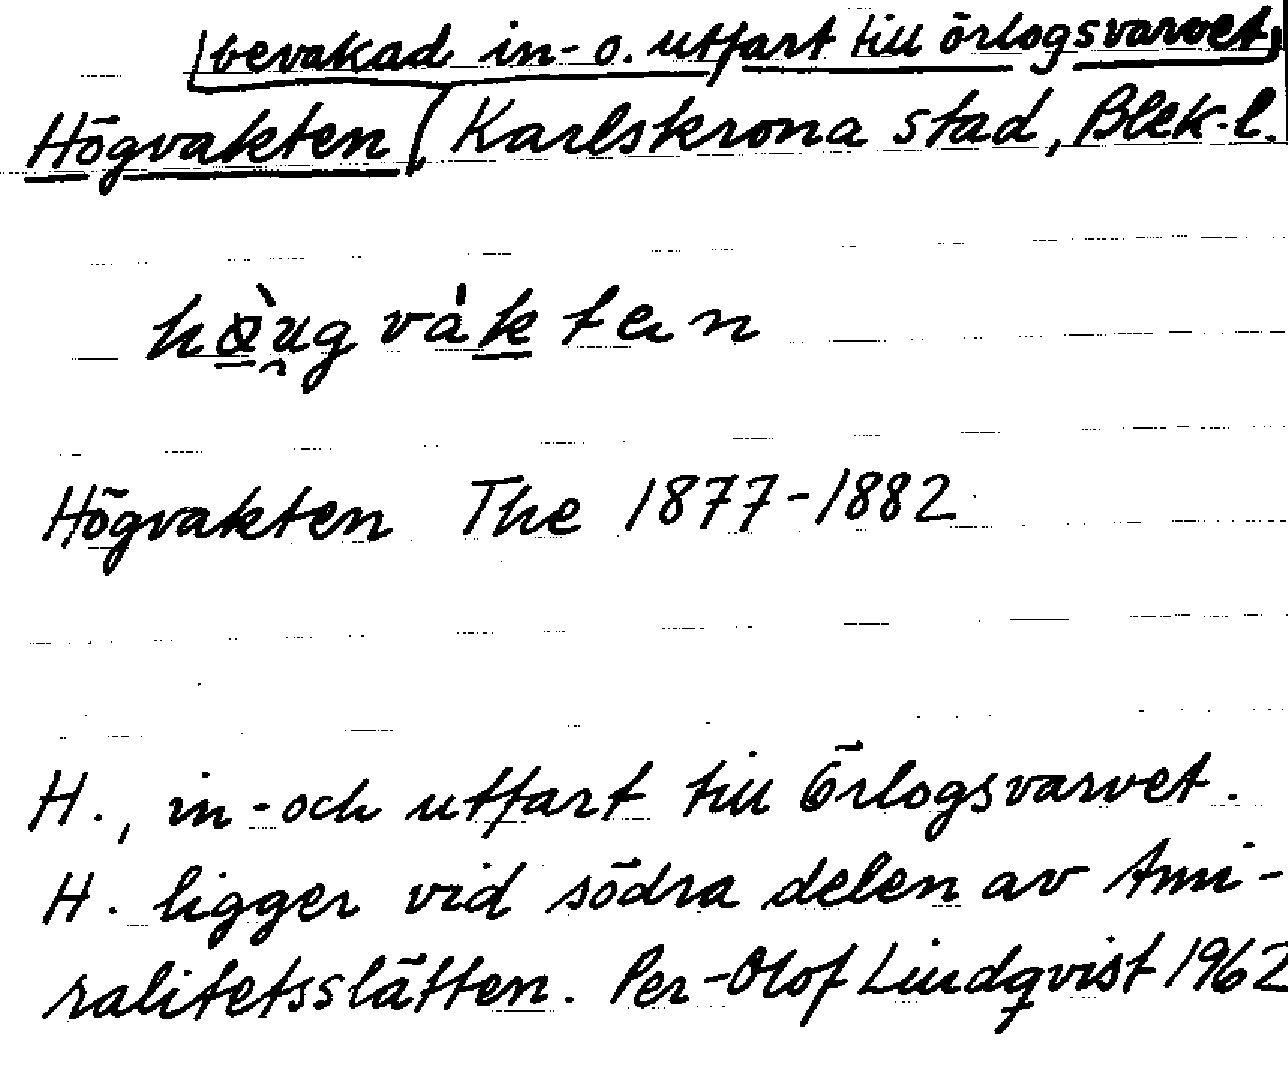 bevakad in- o. utfart till örlogsvarvet,
Högvakten Karlskrona stad, Blek. l.
högvakten The 1877-1882
H., in- och utfart till Örlogsvarvet.
H. ligger vid södra delen av Ami-
ralitetsslätten. Per-Olof Lindqvist 1962